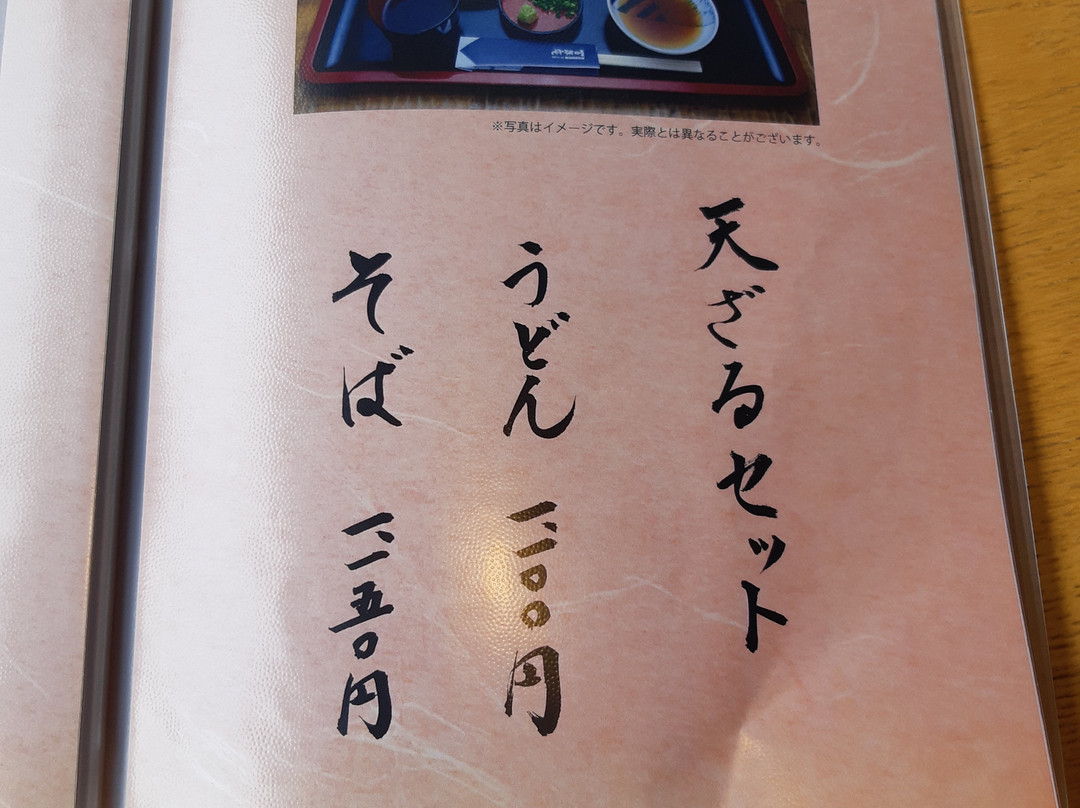 ※写真はイメージです。実際とは異なることがございます。
天ざるセット
うどん 一、一〇〇円
そば 一、一五〇円